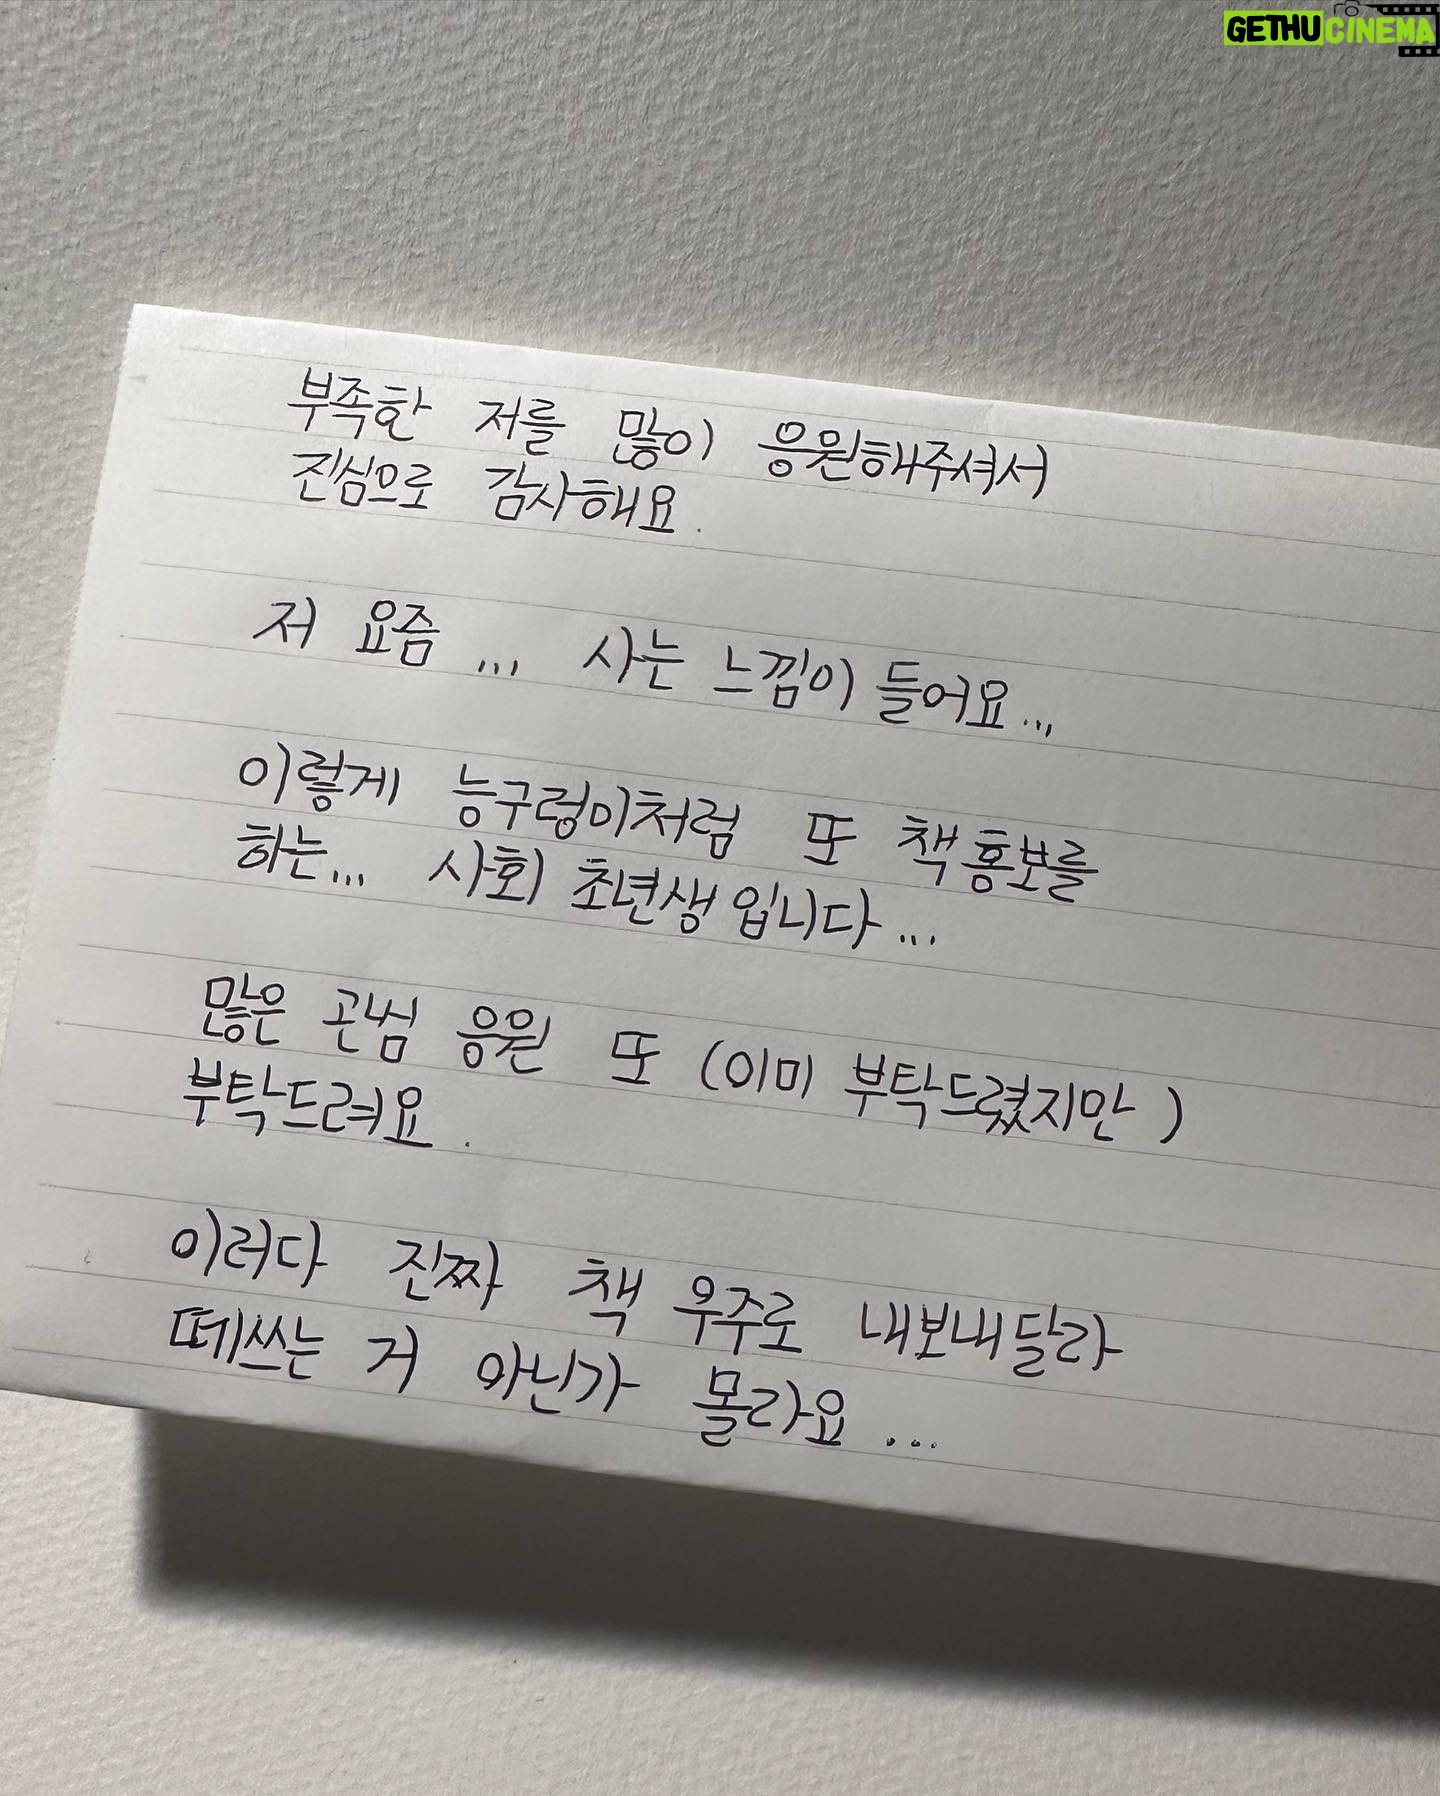 GETHUCINEMA
부족한 저를 많이 응원해주셔서
진심으로 감사해요.
저 요즘 ... 사는 느낌이 들어요...
이렇게 능구렁이처럼 또 책홍보를
하는... 사회 초년생입니다...
많은 관심 응원 또 (이미 부탁드렸지만)
부탁드려요.
이러다 진짜 책 우주로 내보내달라
떼쓰는 거 아닌가 몰라요...